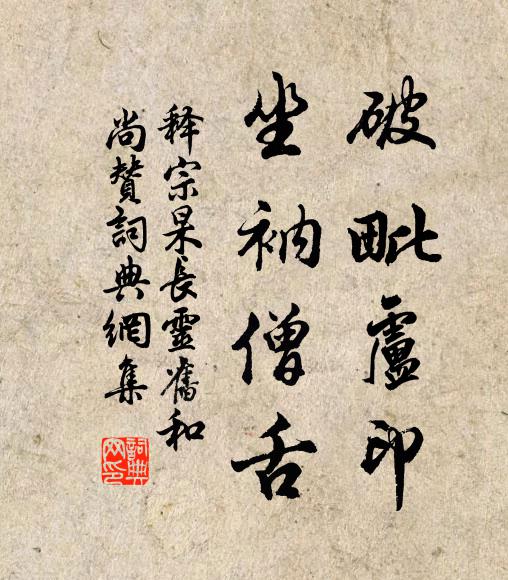 破毗盧印
坐衲僧舌
释宗杲長靈舊和
尚贊詞典網集
詞典网印